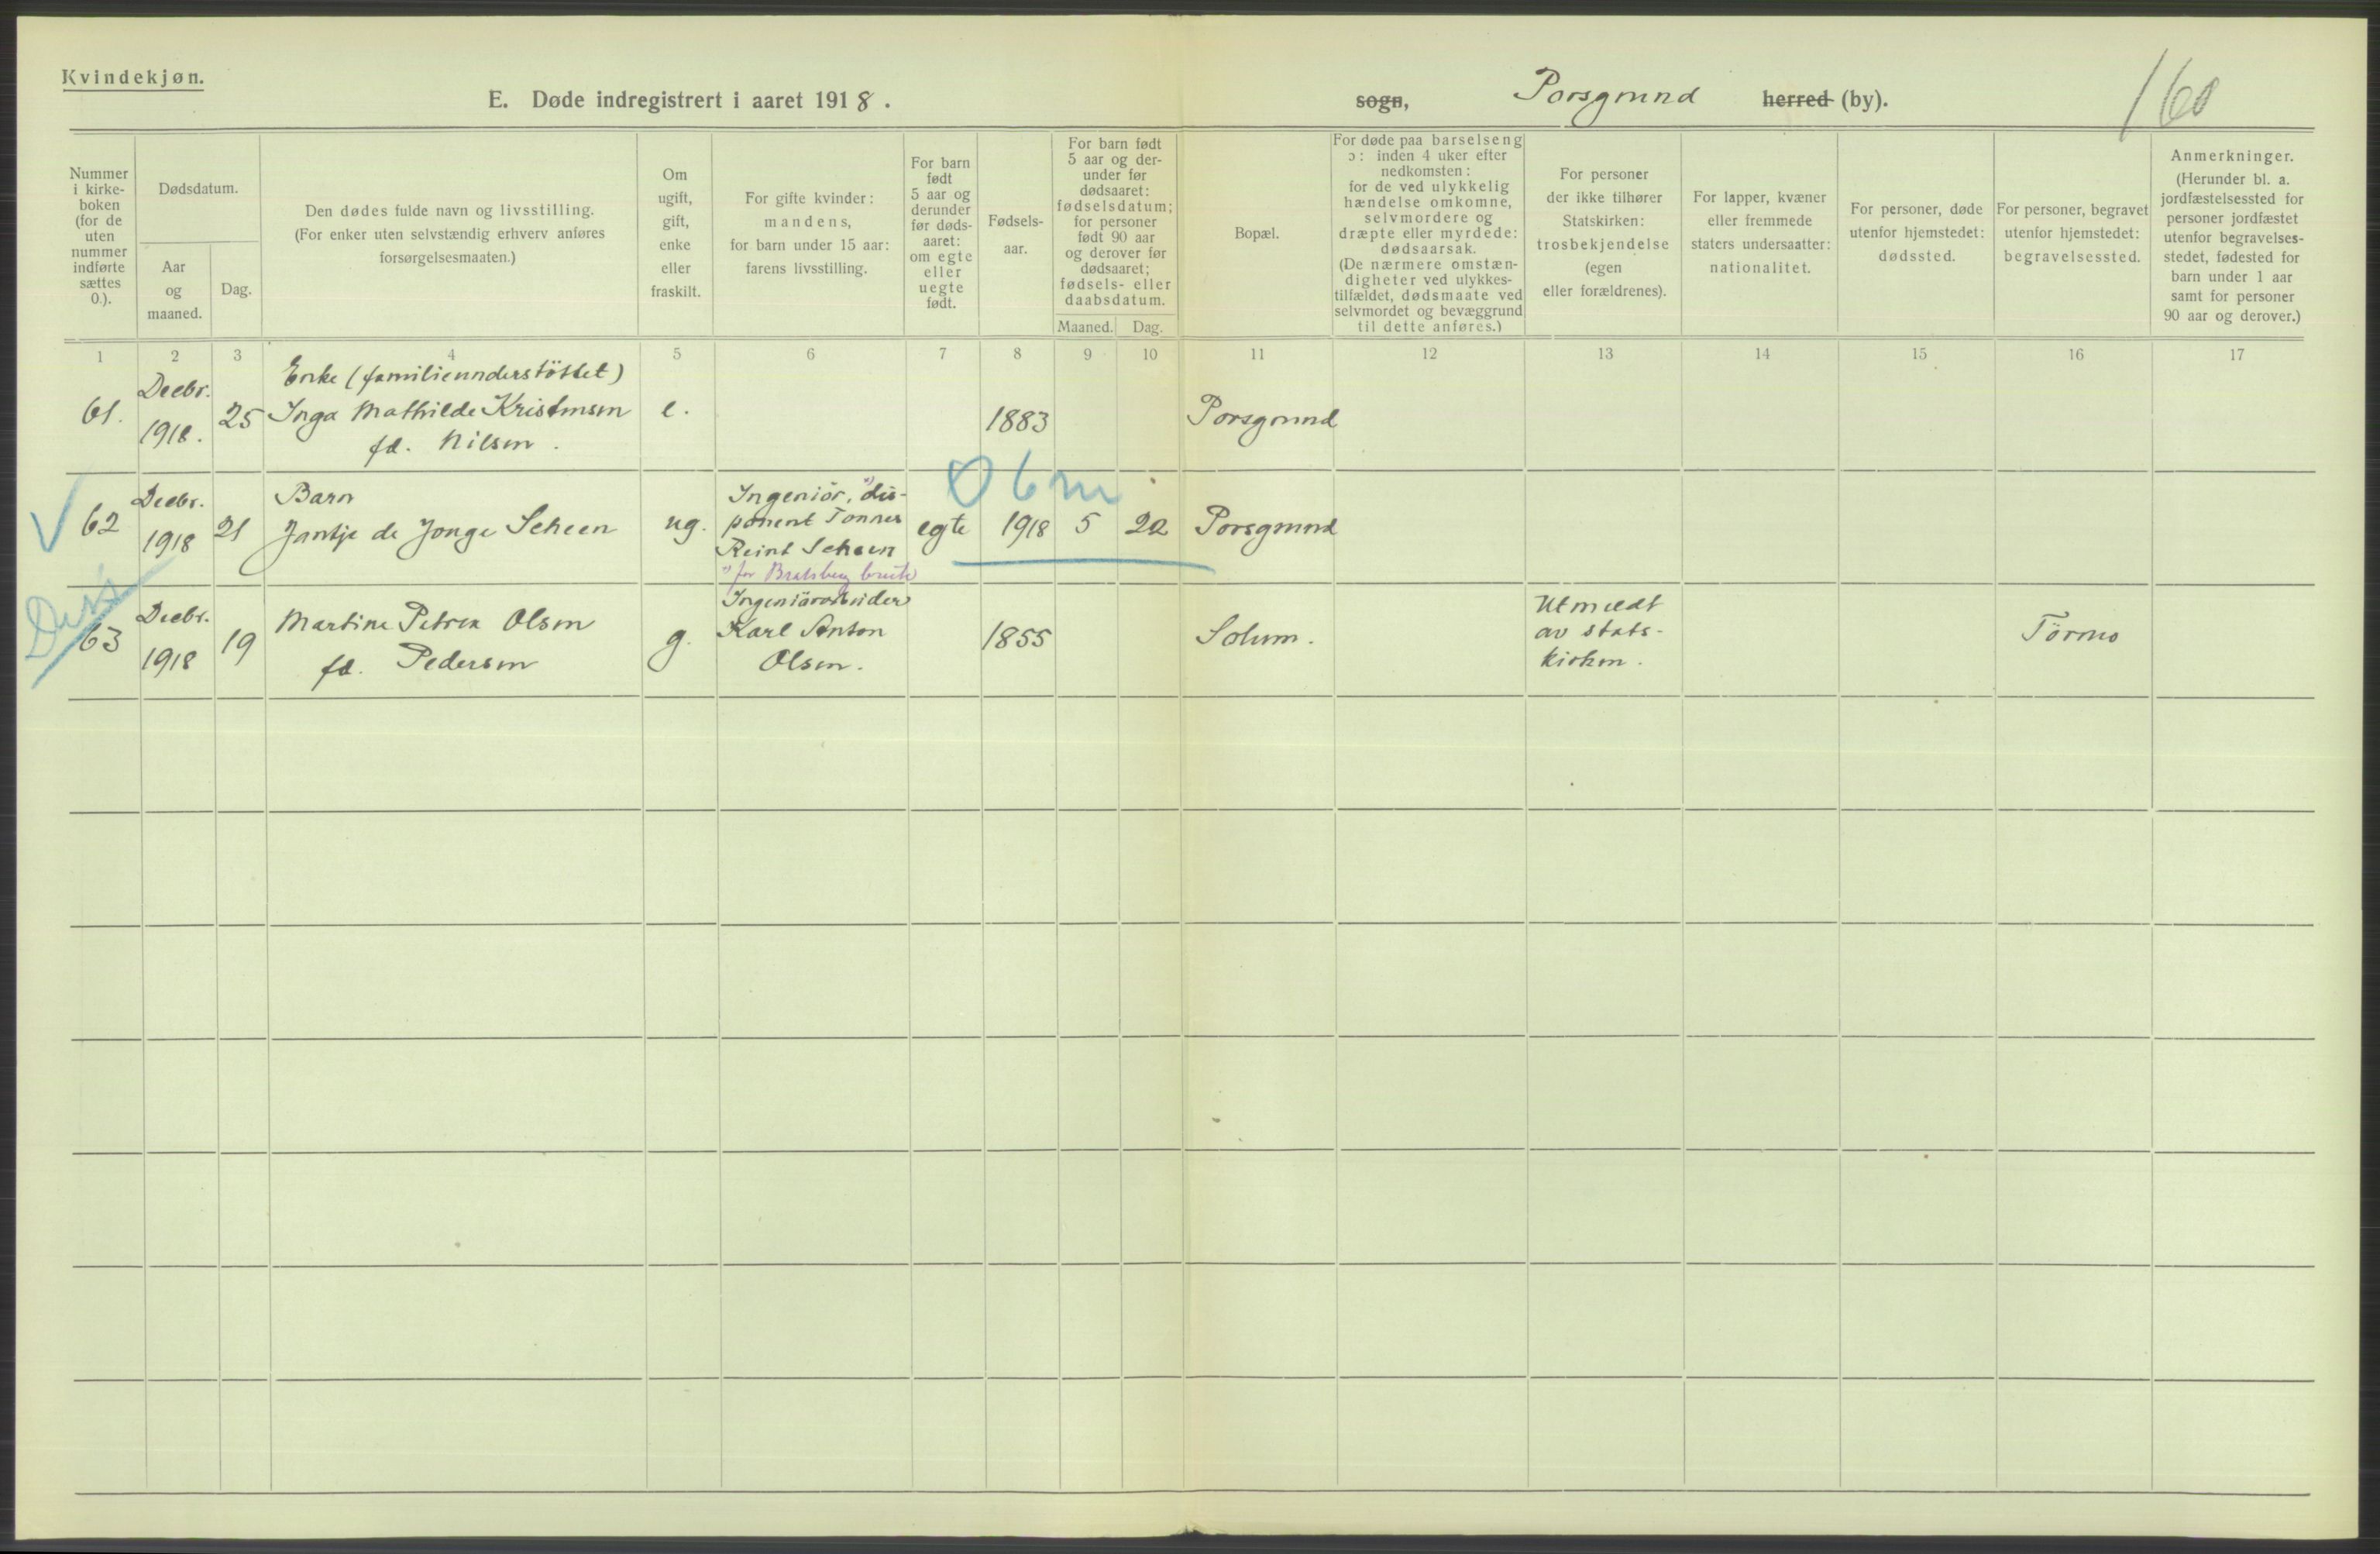 Kvindekjøn.
E. Døde indregistrert i aaret 1918. sogn, Porsgrund herred (by).
160
Nummer
i kirke-
boken
(for de
uten
nummer
indførte
sættes
0.).
Dødsdatum.
Aar
og
maaned.
Dag.
Den dødes fulde navn og livsstilling.
(For enker uten selvstændig erhverv anføres
forsørgelsesmaaten.)
Om
ugift,
gift,
enke
eller
fraskilt.
For gifte kvinder:
mandens,
for barn under 15 aar:
farens livsstilling.
For barn
født
5 aar og
derunder
før døds-
aaret:
om egte
eller
uegte
født.
Fødsels-
aar.
For barn født
5 aar og der-
under før
dødsaaret:
fødselsdatum;
for personer
født 90 aar
og derover før
dødsaaret;
fødsels- eller
daabsdatum.
Maaned. Dag.
Bopæl.
For døde paa barselseng
ɔ: inden 4 uker efter
nedkomsten:
for de ved ulykkelig
hændelse omkomne,
selvmordere og
dræpte eller myrdede:
dødsaarsak.
(De nærmere omstæn-
digheter ved ulykkes-
tilfældet, dødsmaate ved
selvmordet og bevæggrund
til dette anføres.)
For personer
der ikke tilhører
Statskirken:
trosbekjendelse
(egen
eller forældrenes).
For lapper, kvæner
eller fremmede
staters undersaatter:
nationalitet.
For personer, døde
utenfor hjemstedet:
dødssted.
For personer, begravet
utenfor hjemstedet:
begravelsessted.
Anmerkninger.
(Herunder bl. a.
jordfæstelsessted for
personer jordfæstet
utenfor begravelses-
stedet, fødested for
barn under 1 aar
samt for personer
90 aar og derover.)
1 2 3 4 5 6 7 8 9 10 11 12 13 14 15 16 17
61.
Decbr.
1918.
25
Enke (familieunderstöttet)
Inga Mathilde Kristensen
fd. Nilsen.
e.
1883
Porsgrund
62
Decbr.
1918
21
Barn
Jantje de Jonge Scheen
ug.
Ingeniör, dis-
ponent Tonnes
Reint Scheen
for Bratsberg bruk
egte
0 6 m
1918
5
22
Porsgrund
63
Decbr.
1918
19
Martine Petrea Olsen
fd. Pedersen
g.
Karl Anton
Olsen.
1855
Solum.
Utmeldt
av stats-
kirken.